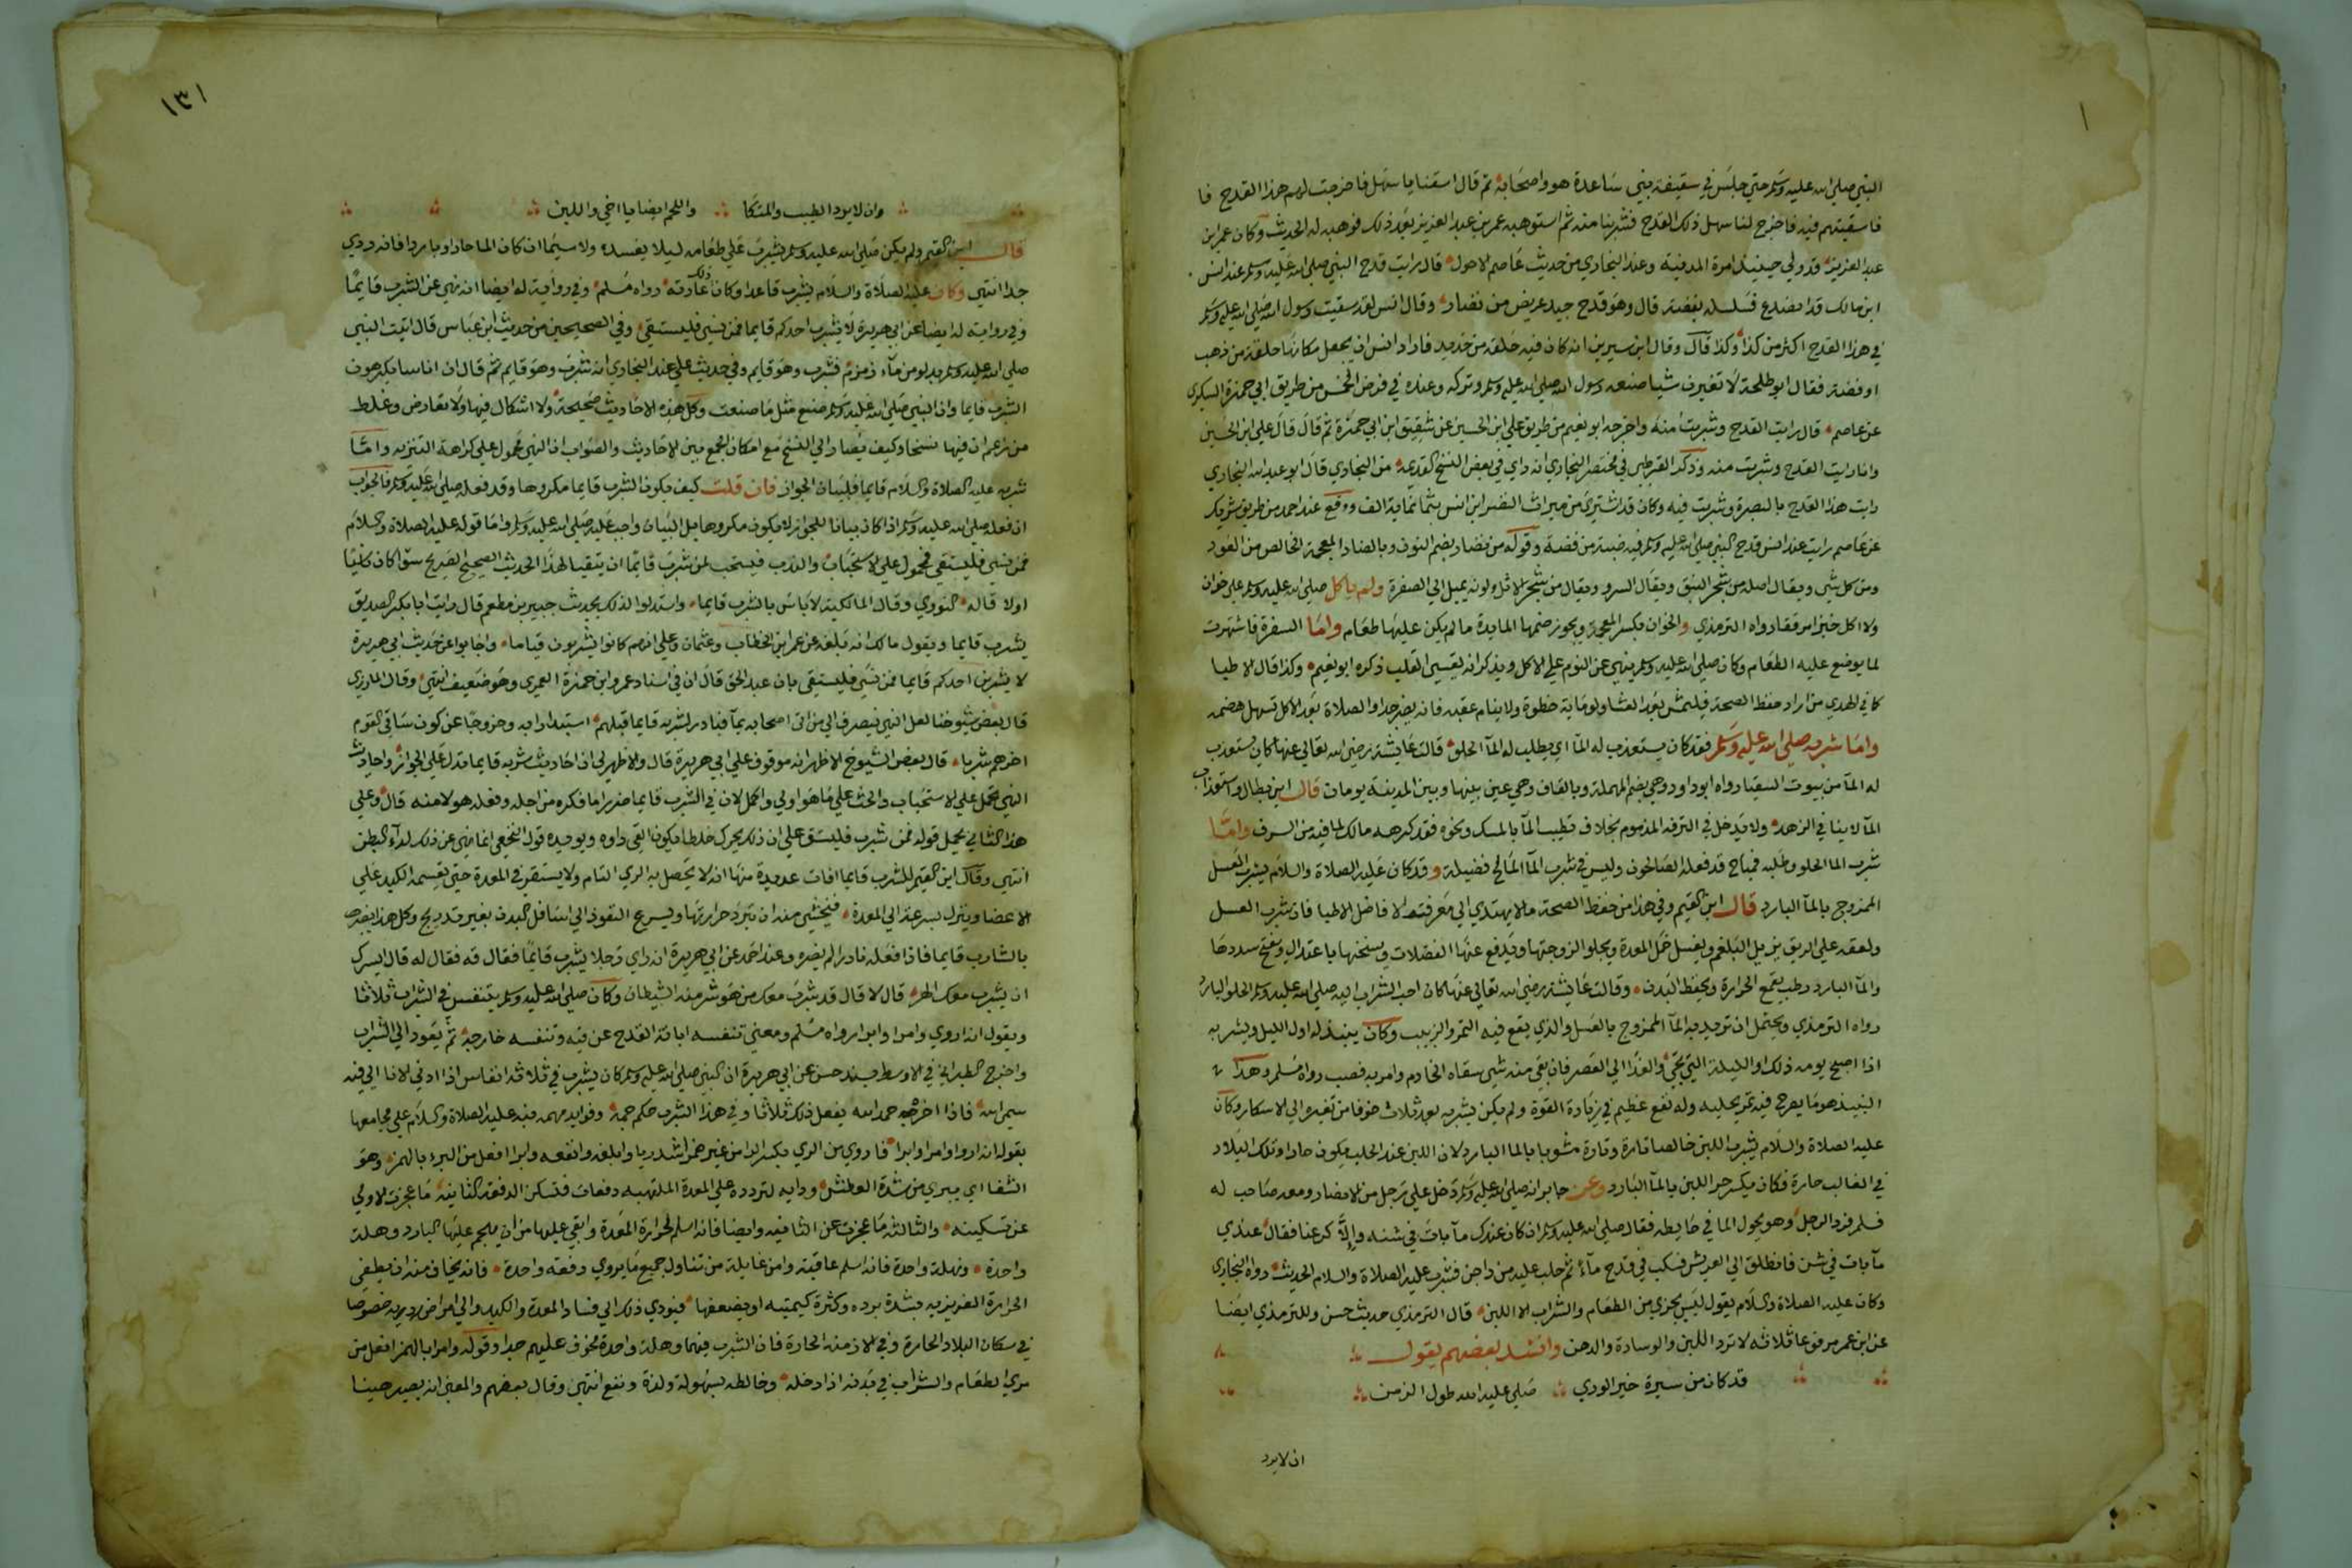 النبي صلى الله عليه وسلم حتي جلس في سقيفة بني ساعدة هو واصحابه ثم قال اسقنا يا سهل فاخرجت لهم هذا القدح فا
فاسقيتهم فيه فاخرج لنا سهل ذلك القدح فشربنا منه ثم استوهبه عمر بن عبد العزيز بعد ذلك فوهبه له الحديث وكان عمر ابن
عبد العزيز قد ولي حينئذ امرة المدينة وعند البخاري من حديث عاصم الاحول قال رايت قدح النبي صلى الله عليه وسلم عند انس
ابن مالك قد انصدع فسلسله بفضة قال وهو قدح جيد عريض من نضار وقال انس لقد سقيت رسول الله صلى الله عليه وسلم
في هذا القدح اكثر من كذا وكذا قال وقال ابن سيرين انه كان فيه حلقة من حديد فاراد انس ان يجعل مكانها حلقة من ذهب
او فضة فقال ابو طلحة لا تغيرن شيا صنعه رسول الله صلى الله عليه وسلم وتركه وعنده في فرض الخمس من طريق ابي حمزة السكري
عن عاصم قال رايت القدح وشربت منه واخرجه ابو نعيم من طريق علي ابن الحسين عن شقيق ابن ابي حمزة ثم قال قال علي ابن الحسين
وانا رايت القدح وشربت منه وذكر القرطبي في مختصر البخاري انه راي في بعض النسخ القديمة من البخاري قال ابو عبد الله البخاري
رايت هذا القدح بالبصرة وشربت فيه وكان قد اشتري من ميراث النضر ابن انس بثمانماية الف ووقع عند احمد من طريق شريك
عن عاصم رايت عند انس قدح النبي صلى الله عليه وسلم فيه ضبة من فضة وقوله من نضار بضم النون وبالضاد المعجمة الخالص من العود
ومن كل شي ويقال اصله من شجر النبق ويقال السرو ويقال من شجر الاثل ولونه يميل الي الصفرة ولم ياكل صلى الله عليه وسلم علي خوان
ولا اكل خبزا مرققا رواه الترمذي والخوان بكسر المعجمة ويجوز ضمها المايدة ما لم يكن عليها طعام واما السفرة فاشتهرت
لما يوضع عليه الطعام وكان صلى الله عليه وسلم ينهي عن النوم علي الاكل ويذكر انه يقسي القلب ذكره ابو نعيم وكذا قال الاطبا
كما في الهدي من اراد حفظ الصحة فليمش بعد العشا ولو ماية خطوة ولا ينام عقبه فانه يضر جدا والصلاة بعد الاكل تسهل هضمه
واما شربه صلى الله عليه وسلم فقد كان يستعذب له المآ اي يطلب له المآ الحلو قالت عايشة رضي الله تعالي عنها كان يستعذب
له المآ من بيوت السقيا رواه ابو داود وهي بضم المهملة وبالقاف وهي عين بينها وبين المدينة يومان قال ابن بطال واستعذاب
المآ لا ينافي الزهد ولا يدخل في الترفه المذموم بخلاف تطييب المآ بالمسك ونحوه فقد كرهه مالك لما فيه من السرف واما
شرب الما الحلو وطلبه فمباح قد فعله الصالحون وليس في شرب المآ المالح فضيلة وقد كان عليه الصلاة والسلام يشرب العسل
الممزوج بالمآ البارد قال ابن القيم وفي هذا من حفظ الصحة ما لا يهتدي الي معرفته الا افاضل الاطبا فان شرب العسل
ولعقه علي الريق يزيل البلغم ويغسل خمل المعدة ويجلو لزوجتها ويدفع عنها الفضلات ويسخنها باعتدال ويفتح سددها
والمآ البارد رطب يقمع الحرارة ويحفظ البدن وقالت عايشة رضي الله تعالي عنها كان احب الشراب اليه صلى الله عليه وسلم الحلو البارد
رواه الترمذي ويحتمل ان تريد به المآ الممزوج بالعسل والذي يقع فيه التمر والزبيب وكان ينبذ له اول الليل ويشربه
اذا اصبح يومه ذلك والليلة التي تجي والغد الي العصر فان بقي منه شي سقاه الخادم وامر به فصب رواه مسلم وهذا
النبيذ هو ما يطرح فيه تمر يحليه وله نفع عظيم في زيادة القوة ولم يكن يشربه بعد ثلاث خوفا من تغيره الي الاسكار وكان
عليه الصلاة والسلام يشرب اللبن خالصا تارة وتارة مشوبا بالما البارد لان اللبن عند الحلب يكون حارا وتلك البلاد
في الغالب حارة فكان يكسر حر اللبن بالمآ البارد وعن جابر انه صلى الله عليه وسلم دخل علي رجل من الانصار ومعه صاحب له
فسلم فرد الرجل وهو يحول الما في حايطه فقال صلى الله عليه وسلم ان كان عندك مآ بات في شنه والا كرعنا فقال عندي
مآ بات في شن فانطلق الي العريش فسكب في قدح مآء ثم حلب عليه من داجن فشرب عليه الصلاة والسلام الحديث رواه البخاري
وكان عليه الصلاة والسلام يقول ليس يجزي من الطعام والشراب الا اللبن قال الترمذي حديث حسن وللترمذي ايضا
عن ابن عمر مرفوعا ثلاثه لا ترد اللبن والوسادة والدهن وانشد بعضهم يقول
قد كان من سيرة خير الوري صلي عليه الله طول الزمن
ان لا يرد
١٣١
وان لا يرد الطيب والمتكا واللحم ايضا يا اخي واللبن
قال ابن القيم ولم يكن صلى الله عليه وسلم يشرب علي طعامه ليلا يفسده ولا سيما ان كان الما حارا او باردا فانه ردي
جدا انتهي وكان عليه الصلاة والسلام يشرب قاعدا وكان ذلك عادته رواه مسلم وفي رواية له ايضا انه نهي عن الشرب قايما
وفي رواية له ايضا عن ابي هريرة لا يشرب احدكم قايما فمن نسي فليستقي وفي الصحيحين من حديث ابن عباس قال اتيت النبي
صلى الله عليه وسلم بدلو من مآء زمزم فشرب وهو قايم وفي حديث علي عند البخاري انه شرب وهو قايم ثم قال ان اناسا يكرهون
الشرب قايما وان النبي صلى الله عليه وسلم صنع مثل ما صنعت وكل هذه الاحاديث صحيحة ولا اشكال فيها ولا تعارض وغلط
من زعم ان فيها نسخا وكيف يصار الي النسخ مع امكان الجمع بين الاحاديث والصواب ان النهي محمول علي كراهة التنزيه واما
شربه عليه الصلاة والسلام قايما فلبيان الجواز فان قلت كيف يكون الشرب قايما مكروها وقد فعله صلى الله عليه وسلم فالجواب
ان فعله صلى الله عليه وسلم اذا كان بيانا للجواز لا يكون مكروها بل البيان واجب عليه صلى الله عليه وسلم واما قوله عليه الصلاة والسلام
فمن نسي فليستقي فمحمول علي الاستحباب والندب فيستحب لمن شرب قايما ان يتقيا لهذا الحديث الصحيح الصريح سوا كان ناسيا
اولا قاله النووي وقال المالكية لا باس بالشرب قايما واستدلوا لذلك بحديث جبير بن مطعم قال رايت ابا بكر الصديق
يشرب قايما ويقول مالك انه بلغه عن عمر ابن الخطاب وعثمان وعلي انهم كانوا يشربون قياما واجابوا عن حديث ابي هريرة
لا يشربن احدكم قايما فمن نسي فليستقي بان عبد الحق قال ان في اسناده عمر وابن حمزة العمري وهو ضعيف انتهي وقال المازري
قال بعض شيوخنا لعل النهي ينصرف الي من اتي اصحابه بمآ فبادر لشربه قايما قبلهم استبدادا به وخروجا عن كون ساقي القوم
اخرهم شربا قال بعض الشيوخ الاظهر انه موقوف علي ابي هريرة قال والاظهر لي ان احاديث شربه قايما تدل علي الجواز واحاديث
النهي تحمل علي الاستحباب والحث علي ما هو اولي واكمل لان في الشرب قايما ضررا ما فكره من اجله وفعله هو لامنه قال وعلي
هذا الثاني يحمل قوله فمن شرب فليستق علي ان ذلك يحرك خلطا يكون القي دواه ويويده قول النخعي انما نهي عن ذلك لدآء البطن
انتهي وقال ابن القيم للشرب قايما افات عديدة منها انه لا يحصل به الري التام ولا يستقر في المعدة حتي يقسمه الكبد علي
الاعضا وينزل بسرعة الي المعدة فيخشي منه ان تبرد حرارتها ويسرع النفوذ الي اسافل البدن بغير تدريج وكل هذا يضر
بالشارب قايما فاذا فعله نادرا لم يضره وعند احمد عن ابي هريرة انه راي رجلا يشرب قايما فقال قه فقال له قال ايسرك
ان يشرب معك الهر قال لا قال قد شرب معك من هو شر منه الشيطان وكان صلى الله عليه وسلم يتنفس في الشراب ثلاثا
ويقول انه اروي وامرا وابرا رواه مسلم ومعني تنفسه ابانة القدح عن فيه وتنفسه خارجه ثم يعود الي الشراب
واخرج الطبراني في الاوسط بسند حسن عن ابي هريرة ان النبي صلى الله عليه وسلم كان يشرب في ثلاثة انفاس اذا ادني الانا الي فيه
سمي الله فاذا اخره حمد الله يفعل ذلك ثلاثا وفي هذا الشرب حكم جمة وفوايد مهمه نبه عليه الصلاة والسلام علي مجامعها
بقوله انه اروا وامرا وابرا فاروي من الري بكسر الرا من غير همز اشد ريا وابلغه وانفعه وابرا افعل من البرء بالهمز وهو
الشفا اي يبري من شدة العطش ودايه لتردده علي المعدة الملتهبه دفعات فتسكن الدفعة الثانية ما عجزت الاولي
عن تسكينه والثالثه ما عجزت عن الثانيه وايضا فانه اسلم لحرارة المعدة وابقي عليها من ان يهجم عليها البارد وهلة
واحدة ونهلة واحدة فانه اسلم عاقبة وامن غايلة من تناول جميع ما يروي دفعة واحدة فانه يخاف منه ان يطفي
الحرارة الغريزيه بشدة برده وكثرة كيميته او يضعفها فيودي ذلك الي فساد المعدة والكبد والي امراض رديه خصوصا
في سكان البلاد الحارة وفي الازمنة الحارة فان الشرب فيهما وهلة واحدة مخوف عليهم جدا وقوله وامرا بالهمز افعل من
مري الطعام والشراب في بدنه اذا دخله وخالطه بسهولة ولذة ونفع انتهي وقال بعضهم والمعني انه يصير هنيا